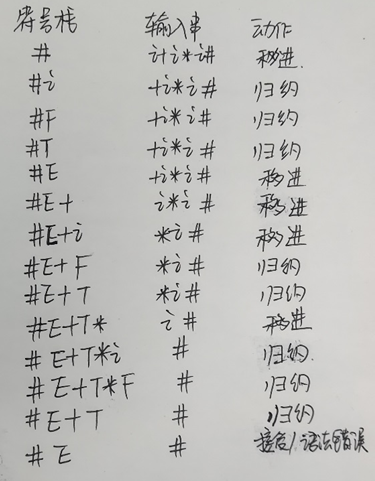 符号栈 输入串 动作
# i+i*i# 移进
#i +i*i# 归约
#F +i*i# 归约
#T +i*i# 归约
#E +i*i# 移进
#E+ i*i# 移进
#E+i *i# 移进
#E+F *i# 归约
#E+T *i# 归约
#E+T* i# 移进
#E+T*i # 归约
#E+T*F # 归约
#E+T # 归约
#E # 接台/语法错误